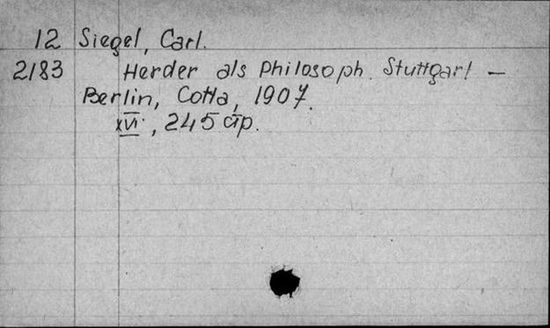 12 Siegel, Carl.
2183 Herder als Philosoph. Stuttgart –
Berlin, Cotta, 1907.
XVI, 245 стр.